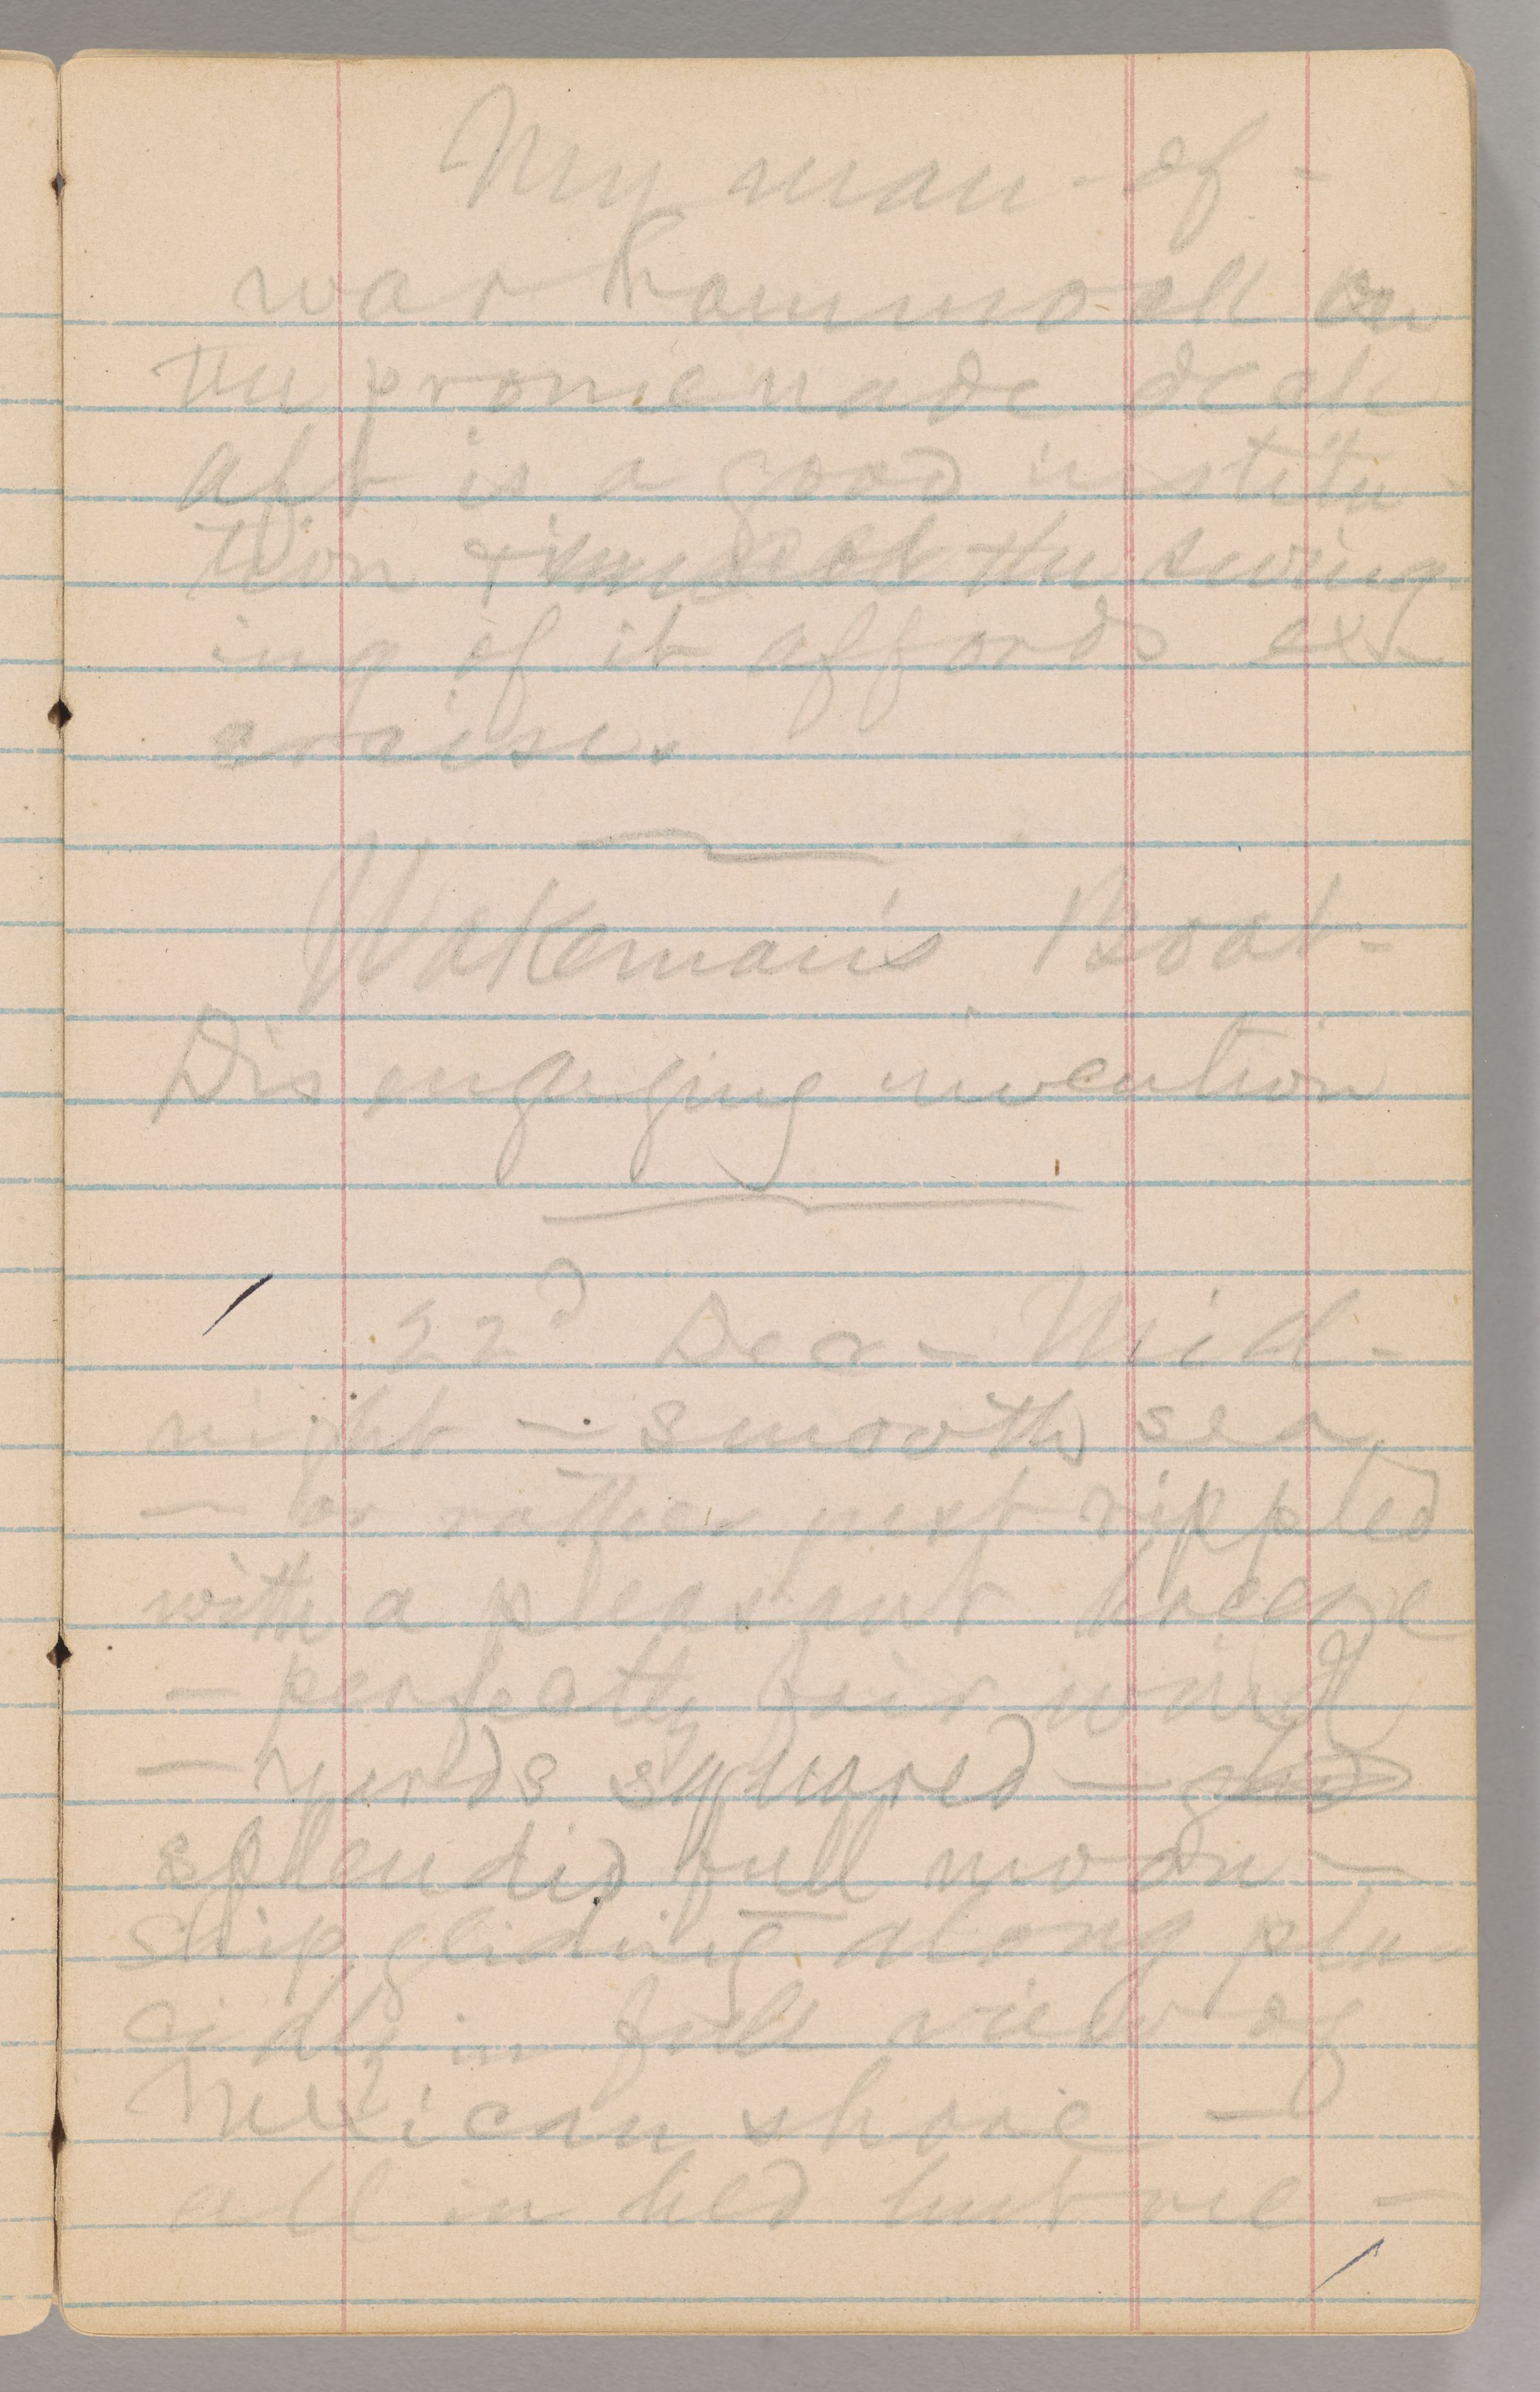 My man-of-
war hammock on
the promenade deck
aft is a good institu-
tion & the swing-
ing of it affords ex-
ercise.
Wakeman's Boat-
Disengaging invention
22d Dec — Mid-
night — smooth sea
— or rather just rippled
with a pleasant breeze
— perfectly fair wind
— yards squared —
splendid full moon —
ship gliding along pla-
cidly in full view of
Mexican shore —
all in bed but me —